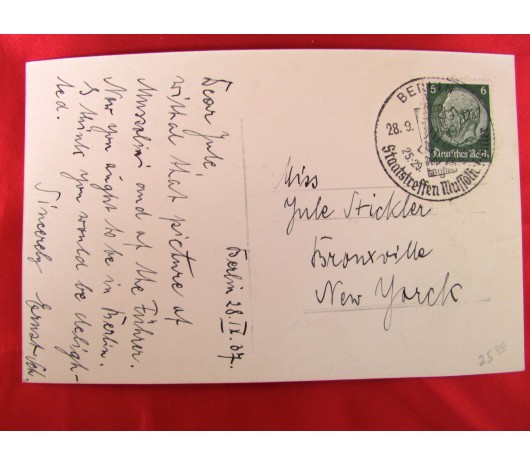 Berlin 28.IX.37.
Dear Jule,
withal that picture of
Mussolini and of the Führer.
Now you ought to be in Berlin.
I think you would be deligh-
ted.
Sincerely Ernst
Miss
Jule Stickler
Bronxville
New Yorck
BERLIN
28.9.
25.-29.
Staatstreffen Mussol
5 6
Deutsches Reich
25 00